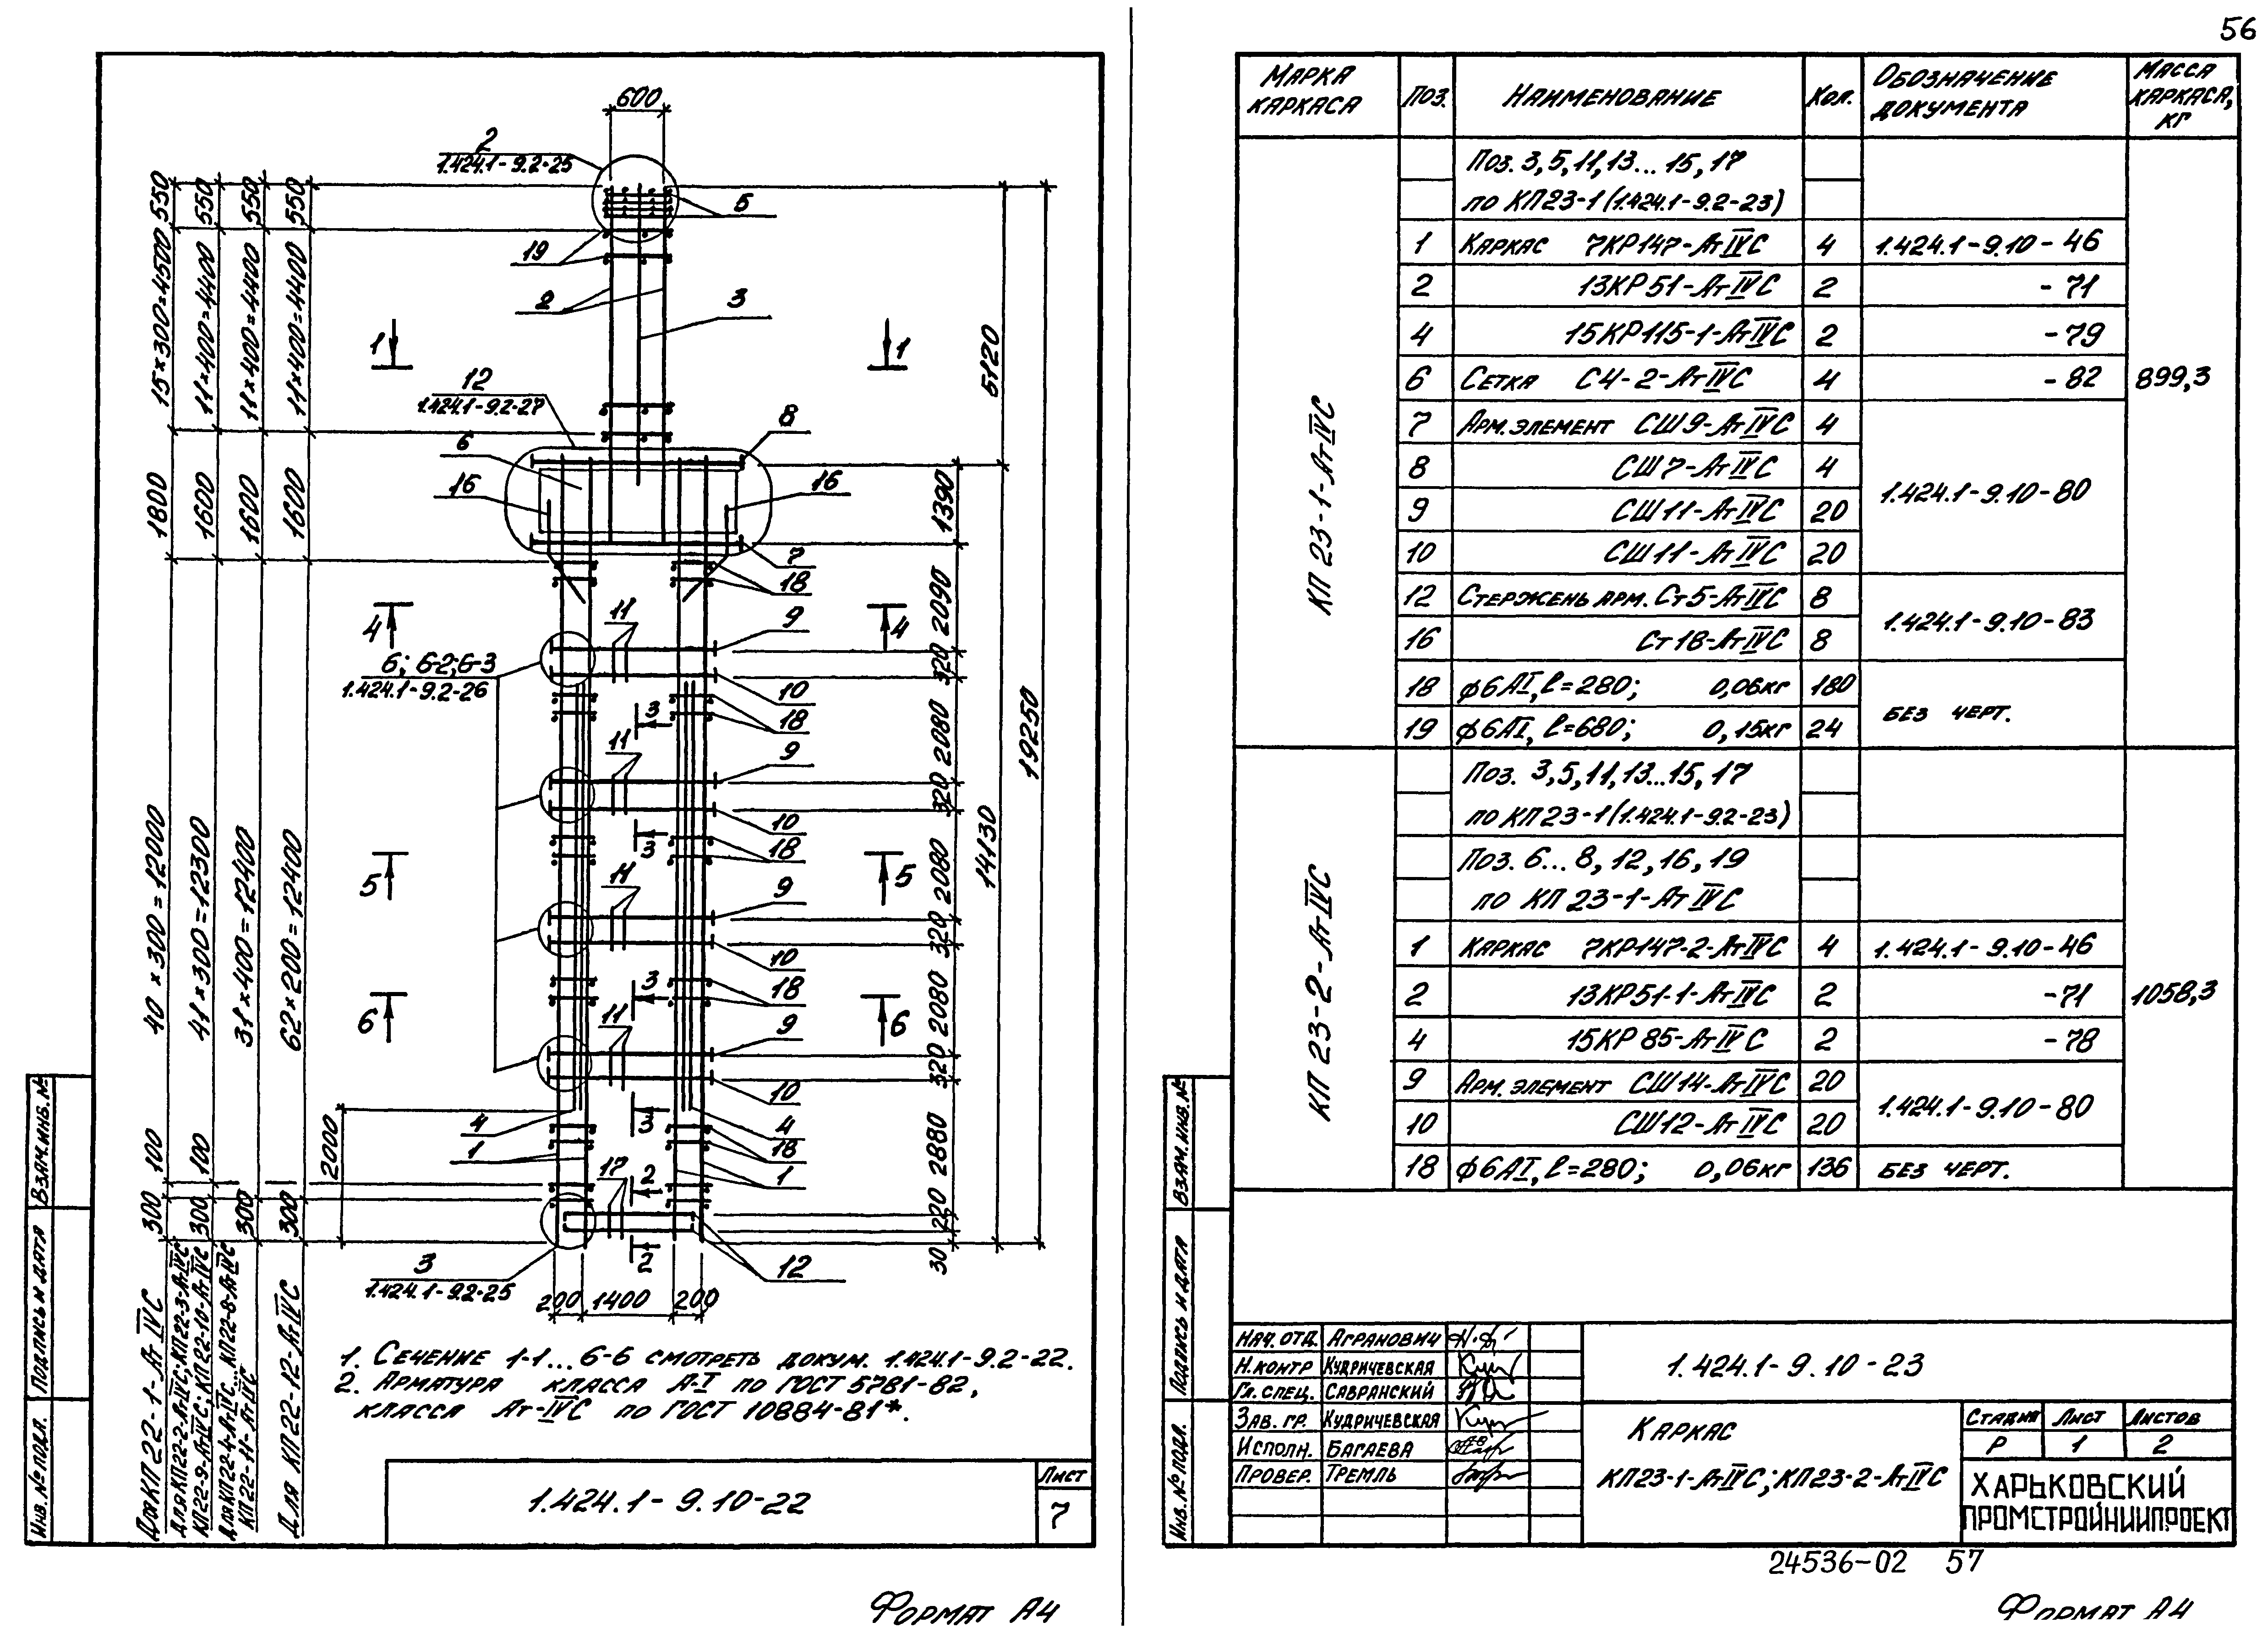 56
600
2
1.424.1-9.2-25
5
19
2
3
1
1
12
1.424.1-9.2-27
8
6
16
16
7
18
11
9
4
4
6; 6-2; 6-3
1.424.1-9.2-26
10
3
18
11
9
10
3
18
5
5
11
9
10
3
18
6
6
11
9
10
4
3
4
18
1
1
17
2
2
12
3
1.424.1-9.2-25
200 1400 200
550 550 550 550
15×300=4500
11×400=4400
11×400=4400
11×400=4400
1800 1600 1600 1600
40×300=12000
41×300=12300
31×400=12400
62×200=12400
100 100
300 300 300 300
2000
5120
19250
14130
1390
2090
320
2080
320
2080
320
2080
320
2880
220
30
Для КП22-1-Ат-IVС
Для КП22-2-Ат-IVС; КП22-3-Ат-IVС
КП22-9-Ат-IVС; КП22-10-Ат-IVС
Для КП22-4-Ат-IVС...КП22-8-Ат-IVС
КП22-11-Ат-IVС
Для КП22-12-Ат-IVС
1. Сечение 1-1...6-6 смотреть докум. 1.424.1-9.2-22.
2. Арматура класса А-I по ГОСТ 5781-82,
класса Ат-IVС по ГОСТ 10884-81*.
1.424.1-9.10-22
Лист
7
Инв. № подл. Подпись и дата Взам. инв. №
Формат А4
Марка каркаса Поз. Наименование Кол. Обозначение документа Масса каркаса, кг
КП 23-1-Ат-IVС
Поз. 3, 5, 11, 13...15, 17
по КП23-1 (1.424.1-9.2-23)
1 Каркас 7КР147-АтIVС 4 1.424.1-9.10-46
2 13КР51-АтIVС 2 -71
4 15КР115-1-АтIVС 2 -79
6 Сетка С4-2-АтIVС 4 -82 899,3
7 Арм. элемент СШ9-АтIVС 4
8 СШ7-АтIVС 4
1.424.1-9.10-80
9 СШ11-АтIVС 20
10 СШ11-АтIVС 20
12 Стержень арм. Ст5-АтIVС 8
1.424.1-9.10-83
16 Ст18-АтIVС 8
18 ϕ6АI, ℓ=280; 0,06кг 180
без черт.
19 ϕ6АI, ℓ=680; 0,15кг 24
КП 23-2-Ат-IVС
Поз. 3, 5, 11, 13...15, 17
по КП23-1 (1.424.1-9.2-23)
Поз. 6...8, 12, 16, 19
по КП 23-1-Ат IVС
1 Каркас 7КР147-2-АтIVС 4 1.424.1-9.10-46
2 13КР51-1-АтIVС 2 -71 1058,3
4 15КР85-АтIVС 2 -78
9 Арм. элемент СШ14-АтIVС 20
1.424.1-9.10-80
10 СШ12-АтIVС 20
18 ϕ6АI, ℓ=280; 0,06кг 136 без черт.
Инв. № подл. Подпись и дата Взам. инв. №
Нач. отд. Агранович
Н. контр Кудричевская
Гл. спец. Савранский
Зав. гр. Кудричевская
Исполн. Багаева
Провер. Тремль
1.424.1-9.10-23
Каркас
КП23-1-АтIVС; КП23-2-АтIVС
Стадия Лист Листов
Р 1 2
ХАРЬКОВСКИЙ
ПРОМСТРОЙНИИПРОЕКТ
24536-02 57
Формат А4